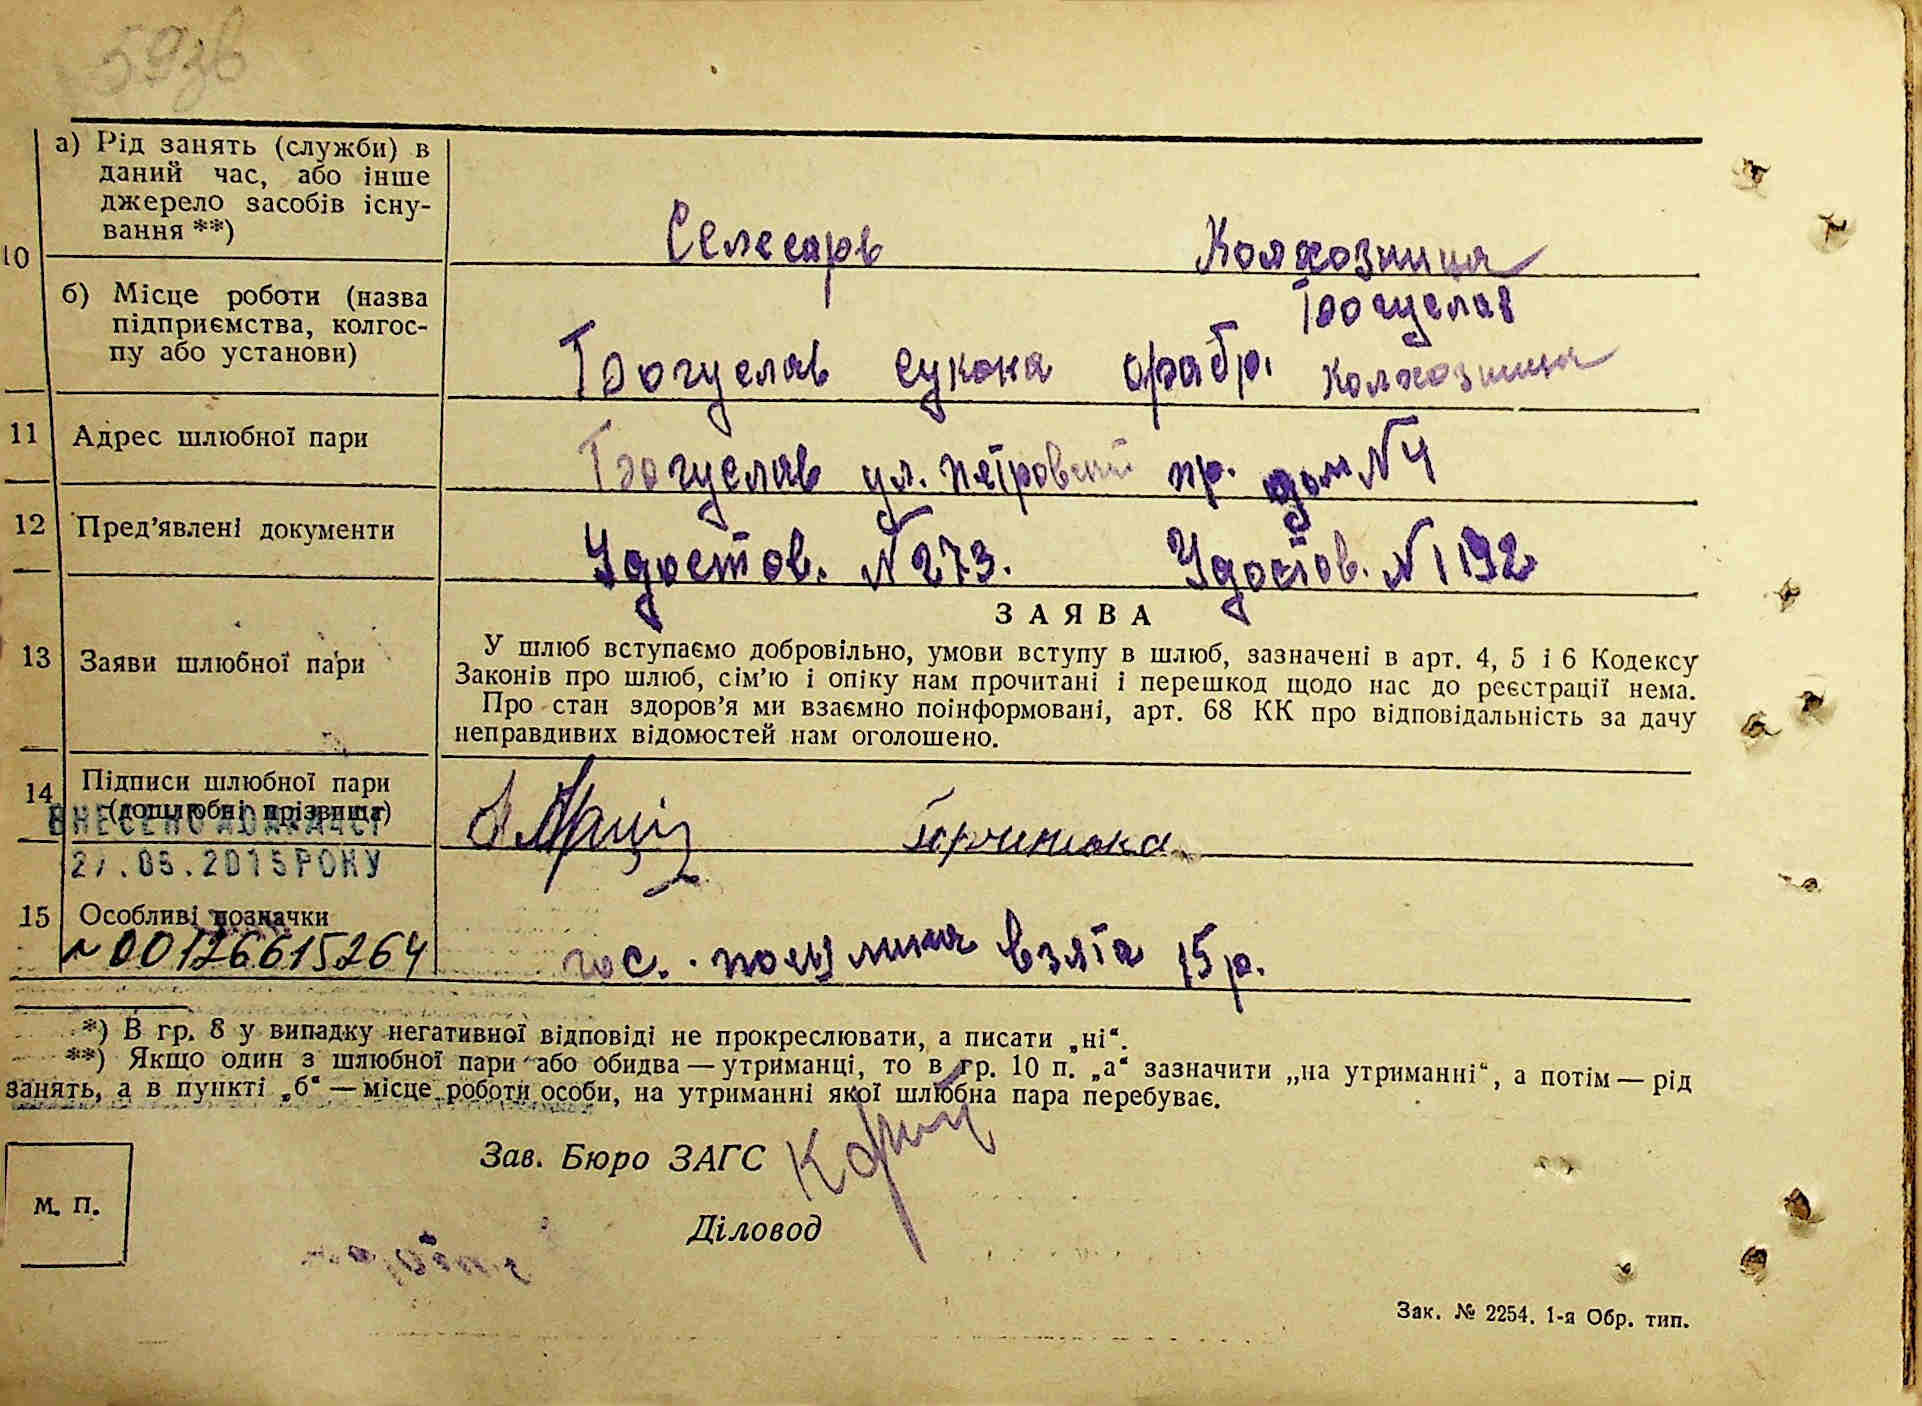 593в
а) Рід занять (служби) в
даний час, або інше
джерело засобів існу-
вання **)
Слесарь Колхозница
10
б) Місце роботи (назва
підприємства, колгос-
пу або установи)
Богуслав
Богуслав сукона фабр. Колхозница
11 Адрес шлюбної пари
Богуслав ул. Петровский пр. дом N 4
12 Пред’явлені документи
Удостов. N 273. Удостов. N 1192
ЗАЯВА
13 Заяви шлюбної пари
У шлюб вступаємо добровільно, умови вступу в шлюб, зазначені в арт. 4, 5 і 6 Кодексу
Законів про шлюб, сім’ю і опіку нам прочитані і перешкод щодо нас до реєстрації нема.
Про стан здоров’я ми взаємно поінформовані, арт. 68 КК про відповідальність за дачу
неправдивих відомостей нам оголошено.
14 Підписи шлюбної пари
(дошлюбні прізвища)
ВНЕСЕНО ДО ДРАЦСГ
27.05.2015 РОКУ
15 Особливі позначки
N 00126615264
гос. пошлина взята 15 р.
*) В гр. 8 у випадку негативної відповіді не прокреслювати, а писати „ні“.
**) Якщо один з шлюбної пари або обидва — утриманці, то в гр. 10 п. „а“ зазначити „на утриманні“, а потім — рід
занять, а в пункті „б“ — місце роботи особи, на утриманні якої шлюбна пара перебуває.
Зав. Бюро ЗАГС
М. П.
Діловод
Зак. № 2254. 1-я Обр. тип.